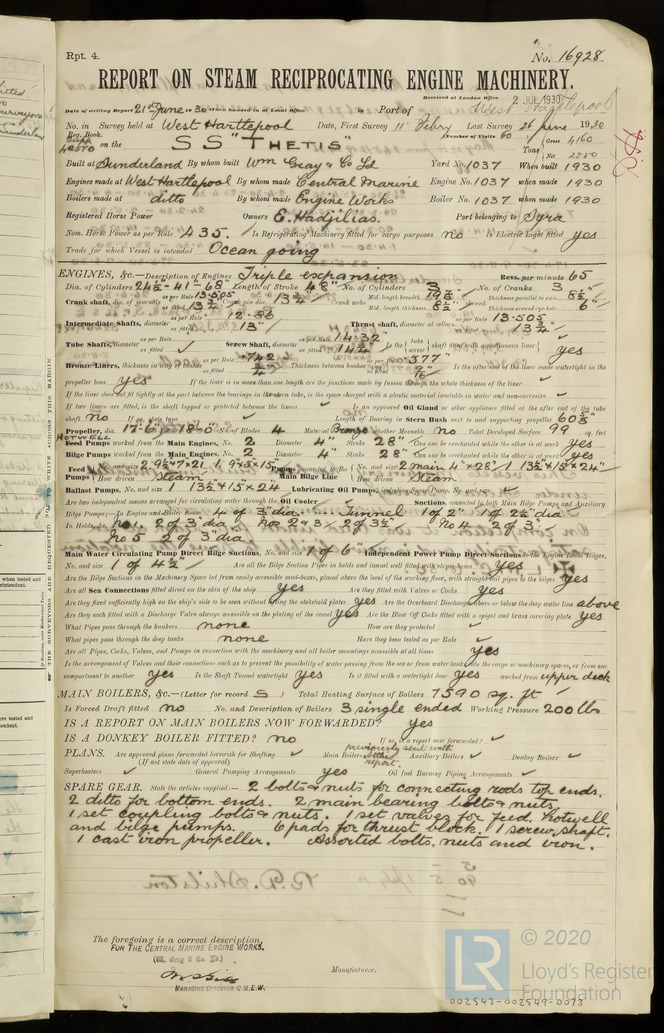 Rpt. 4.
No. 16928
REPORT ON STEAM RECIPROCATING ENGINE MACHINERY.
Received at London Office 2 JUL 1930
Date of writing Report 21st June 1930 When handed in at Local Office Port of West Hartlepool
No. in Survey held at West Hartlepool Date, First Survey 11 Febry Last Survey 26 June 1930
Reg. Book. Number of Visits 60
on the S S "THETIS" Tons Gross 4160
Net
Built at Sunderland By whom built Wm Gray & Co Ld Yard No. 1037 When built 1930
Engines made at West Hartlepool By whom made Central Marine Engine No. 1037 when made 1930
Boilers made at ditto By whom made Engine Works Boiler No. 1037 when made 1930
Registered Horse Power Owners E. Hadjilias. Port belonging to Syra
Nom. Horse Power as per Rule 435. Is Refrigerating Machinery fitted for cargo purposes no Is Electric Light fitted yes
Trade for which Vessel is intended Ocean going
ENGINES, &c.—Description of Engines Triple expansion Revs. per minute 65
Dia. of Cylinders 24½-41-68 Length of Stroke 48" No. of Cylinders 3 No. of Cranks 3
Crank shaft, dia. of journals as per Rule 13.505 as fitted 13¾"
Intermediate Shafts, diameter as per Rule 12.86 as fitted 13" Thrust shaft, diameter at collars as per Rule 13.505 as fitted 13¾"
Tube Shafts, diameter as per Rule as fitted Screw Shaft, diameter as per Rule 14.32 as fitted 14¾" Is the tube screw shaft fitted with a continuous liner yes
Bronze Liners, thickness in way of bushes as per Rule .742 as fitted ¾" Thickness between bushes as per Rule .577" as fitted 9/16" Is the after end of the liner made watertight in the
propeller boss yes If the liner is in more than one length are the junctions made by fusion through the whole thickness of the liner
If the liner does not fit tightly at the part between the bearings in the stern tube, is the space charged with a plastic material insoluble in water and non-corrosive
If two liners are fitted, is the shaft lapped or protected between the liners Is an approved Oil Gland or other appliance fitted at the after end of the tube
shaft no If so, state type Length of Bearing in Stern Bush next to and supporting propeller 60⅜"
Propeller, dia. 17'-6" Pitch 18'-0" No. of Blades 4 Material Bronze whether Moveable no Total Developed Surface 99 sq. feet
HOTWELL
Feed Pumps worked from the Main Engines, No. 2 Diameter 4" Stroke 28" Can one be overhauled while the other is at work yes
Bilge Pumps worked from the Main Engines, No. 2 Diameter 4" Stroke 28" Can one be overhauled while the other is at work yes
Feed Pumps No. and size 2. 9½×7×21 1. 9×5×15" How driven Steam Pumps connected to the Main Bilge Line No. and size 2 main 4"×28" 1 13½×15×24" How driven Steam
Ballast Pumps, No. and size 1 13½×15×24 Lubricating Oil Pumps, including Spare Pump, No. and size
Are two independent means arranged for circulating water through the Oil Cooler Suctions, connected to both Main Bilge Pumps and Auxiliary
Bilge Pumps;—In Engine and Boiler Room 4 of 3" dia. Tunnel 1 of 2" 1 of 2½" dia
In Holds, &c. No 1. 2 of 3" dia Nos 2 & 3 2 of 3½" No 4 2 of 3"
No 5 2 of 3" dia.
Main Water Circulating Pump Direct Bilge Suctions, No. and size 1 of 6" Independent Power Pump Direct Suctions to the Engine Room Bilges,
No. and size 1 of 4½" Are all the Bilge Suction Pipes in holds and tunnel well fitted with strum-boxes yes
Are the Bilge Suctions in the Machinery Space led from easily accessible mud-boxes, placed above the level of the working floor, with straight tail pipes to the bilges yes
Are all Sea Connections fitted direct on the skin of the ship yes Are they fitted with Valves or Cocks yes
Are they fixed sufficiently high on the ship's side to be seen without lifting the stokehold plates yes Are the Overboard Discharges above or below the deep water line above
Are they each fitted with a Discharge Valve always accessible on the plating of the vessel yes Are the Blow Off Cocks fitted with a spigot and brass covering plate yes
What Pipes pass through the bunkers none How are they protected
What pipes pass through the deep tanks none Have they been tested as per Rule
Are all Pipes, Cocks, Valves, and Pumps in connection with the machinery and all boiler mountings accessible at all times yes
Is the arrangement of Valves and their connections such as to prevent the possibility of water passing from the sea or from water tanks into the cargo or machinery spaces, or from one
compartment to another yes Is the Shaft Tunnel watertight yes Is it fitted with a watertight door yes worked from upper deck
MAIN BOILERS, &c.—(Letter for record S) Total Heating Surface of Boilers 7590 sq. ft
Is Forced Draft fitted no No. and Description of Boilers 3 single ended Working Pressure 200 lbs
IS A REPORT ON MAIN BOILERS NOW FORWARDED? yes
IS A DONKEY BOILER FITTED? no If so, is a report now forwarded?
PLANS. Are approved plans forwarded herewith for Shafting previously sent with other report. Main Boilers Auxiliary Boilers Donkey Boilers
(If not state date of approval)
Superheaters General Pumping Arrangements yes Oil fuel Burning Piping Arrangements
SPARE GEAR. State the articles supplied:— 2 bolts & nuts for connecting rods top ends.
2 ditto for bottom ends. 2 main bearing bolts & nuts.
1 set coupling bolts & nuts. 1 set valves for feed, hotwell
and bilge pumps. 6 pads for thrust block. 1 screw shaft.
1 cast iron propeller. Assorted bolts, nuts and iron.
The foregoing is a correct description,
FOR THE CENTRAL MARINE ENGINE WORKS.
(Wm. Gray & Co. Ld.)
Manufacturer.
MANAGING DIRECTOR C.M.E.W.
LR © 2020
Lloyd's Register
Foundation
002543-002549-0073